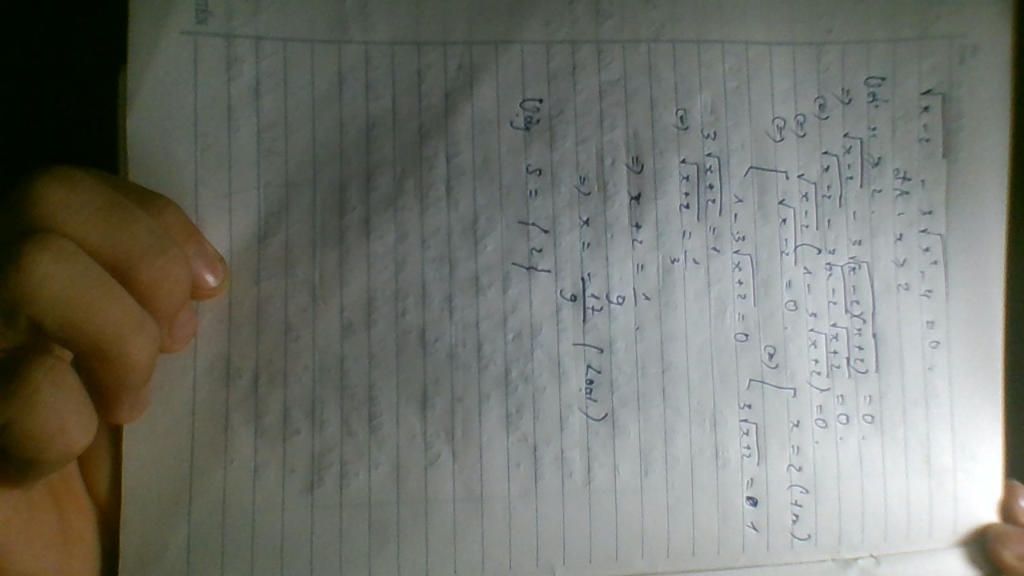 √x-2 - 3√x²-4 = 0.
ĐK: x ≥ 2
Với x ≥ 2.
=> √x-2 - 3√(x-2)(x+2) = 0.
(=) √x-2 - 3√x-2 √x+2 = 0.
(=) √x-2 (1 - 3√x+2) = 0.
(=) [ √x-2 = 0. (=) [ x = 2 (tm)
1 - 3√x+2 = 0 3√x+2 = 1
3√x+2 = 1
(=) √x+2 = 1/3
=> x+2 = 1/9.
=> x = -17/9 (Loại)
Vậy S = {2}